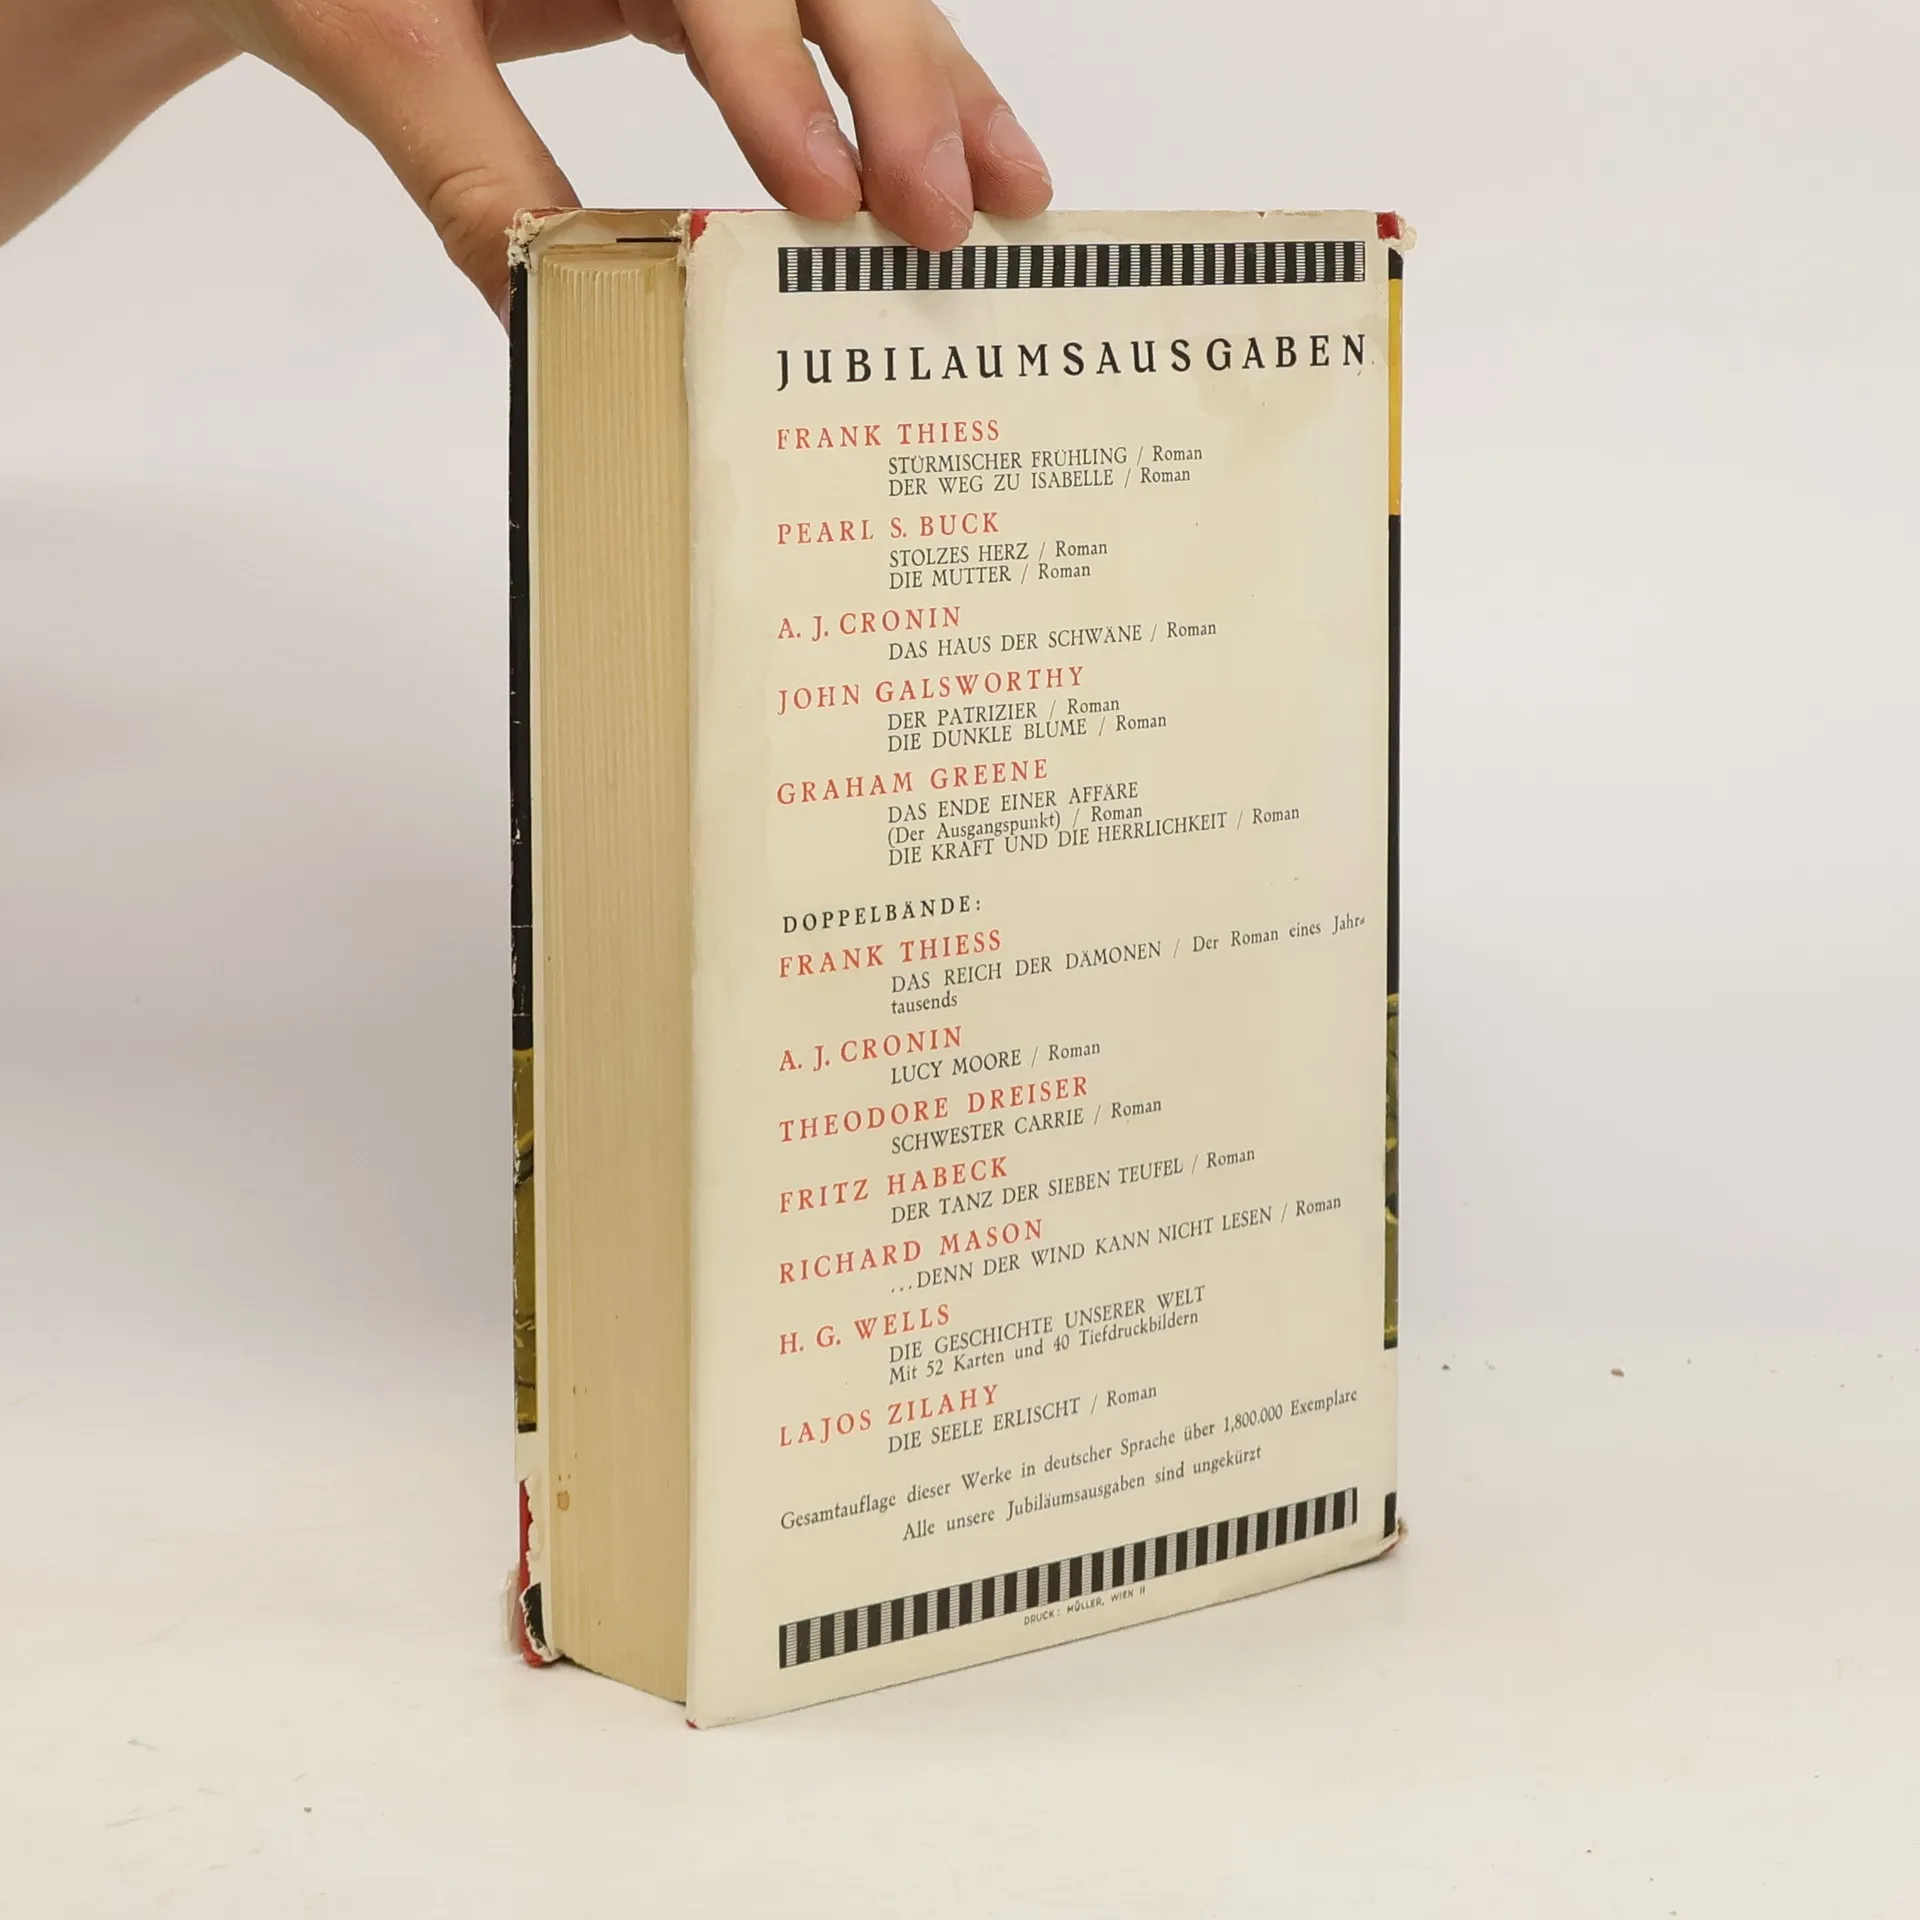 JUBILAUMSAUSGABEN
FRANK THIESS
STÜRMISCHER FRÜHLING / Roman
DER WEG ZU ISABELLE / Roman
PEARL S. BUCK
STOLZES HERZ / Roman
DIE MUTTER / Roman
A. J. CRONIN
DAS HAUS DER SCHWÄNE / Roman
JOHN GALSWORTHY
DER PATRIZIER / Roman
DIE DUNKLE BLUME / Roman
GRAHAM GREENE
DAS ENDE EINER AFFÄRE
(Der Ausgangspunkt) / Roman
DIE KRAFT UND DIE HERRLICHKEIT / Roman
DOPPELBÄNDE:
FRANK THIESS
DAS REICH DER DÄMONEN / Der Roman eines Jahr-
tausends
A. J. CRONIN
LUCY MOORE / Roman
THEODORE DREISER
SCHWESTER CARRIE / Roman
FRITZ HABECK
DER TANZ DER SIEBEN TEUFEL / Roman
RICHARD MASON
...DENN DER WIND KANN NICHT LESEN / Roman
H. G. WELLS
DIE GESCHICHTE UNSERER WELT
Mit 52 Karten und 40 Tiefdruckbildern
LAJOS ZILAHY
DIE SEELE ERLISCHT / Roman
Gesamtauflage dieser Werke in deutscher Sprache über 1,800.000 Exemplare
Alle unsere Jubiläumsausgaben sind ungekürzt
DRUCK: MÜLLER, WIEN II